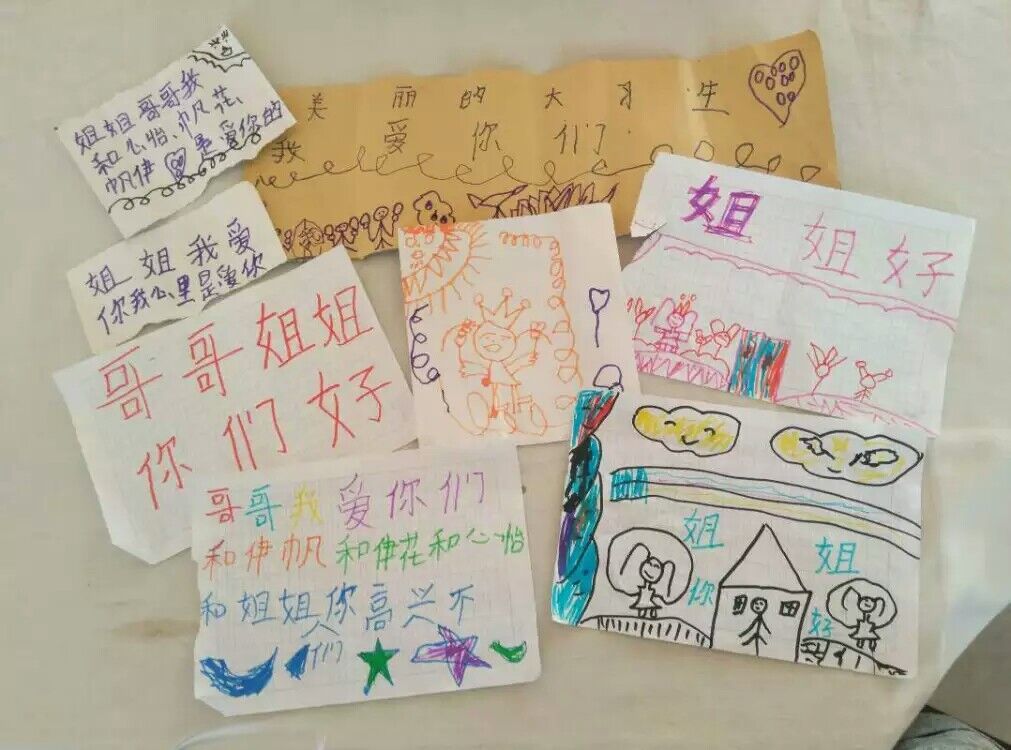 姐姐哥哥我
和心怡、帆花、
帆伊是爱你的
美丽的大学生
我爱你们
姐姐我爱
你我心里是爱你
哥哥姐姐
你们好
姐姐好
哥哥我爱你们
和伊帆和伊花和心怡
和姐姐你高兴不
们
姐姐
你好